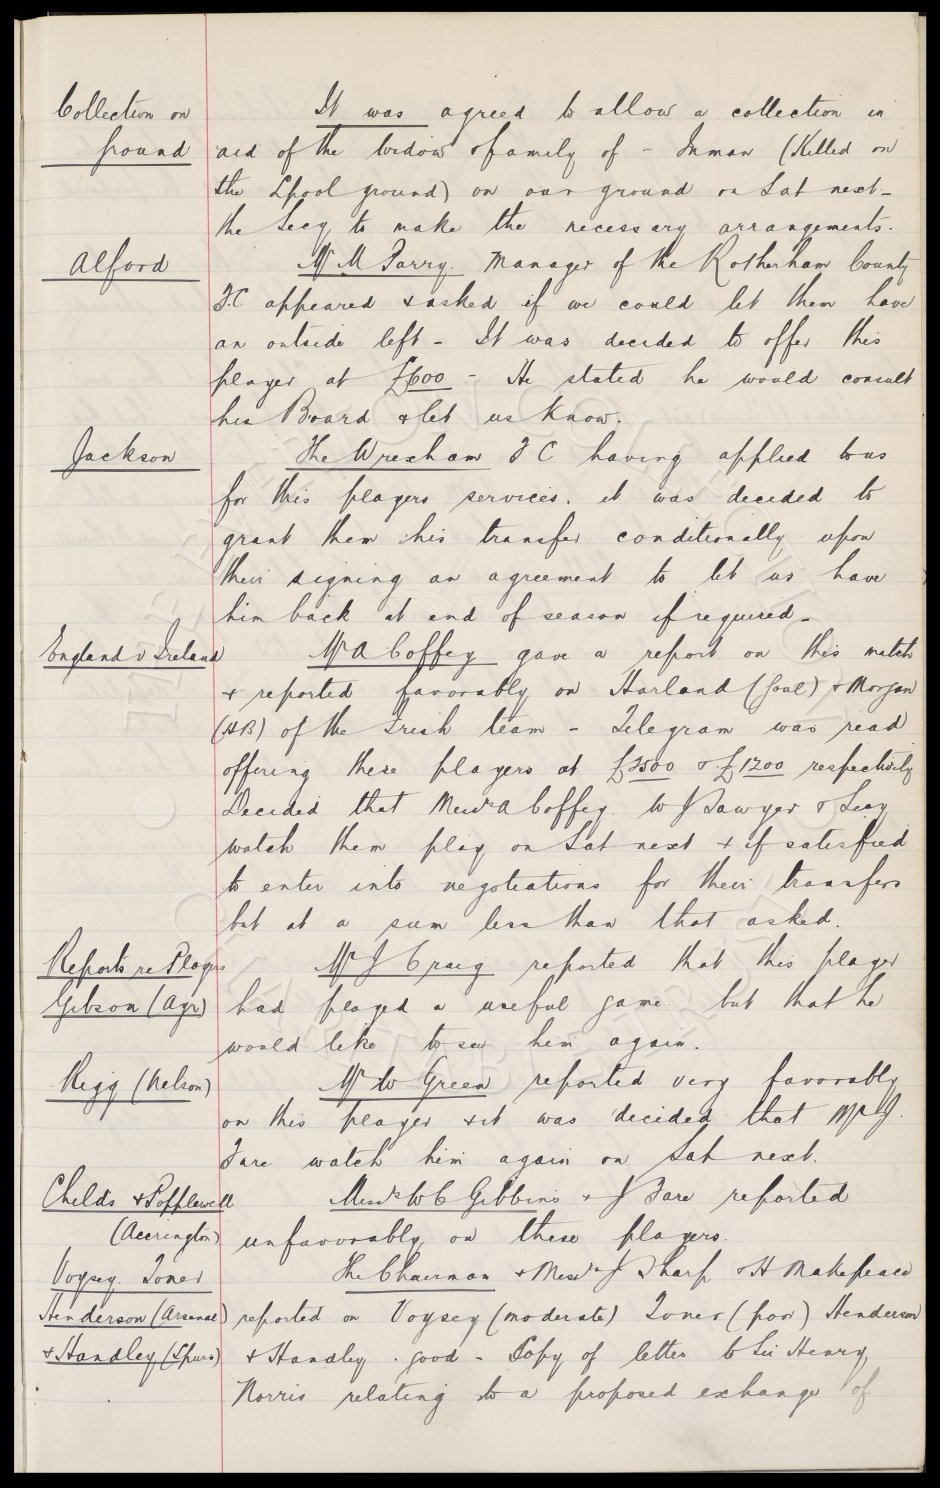 Collection on
ground
It was agreed to allow a collection in
aid of the widow & family of - Inman (Killed on
the Lpool ground) on our ground on Sat next -
the Secy to make the necessary arrangements.
Alford
Mr M Parry. Manager of the Rotherham County
F.C appeared & asked if we could let them have
an outside left - It was decided to offer this
player at £600 - He stated he would consult
his Board & let us know.
Jackson
The Wrexham F C having applied to us
for this players services. it was decided to
grant them his transfer conditionally upon
their signing an agreement to let us have
him back at end of season if required -
England v Ireland
Mr A Coffey gave a report on this match
& reported favorably on Harland (Goal) & Morgan
(HB) of the Irish team - Telegram was read
offering these players at £3500 & £1200 respectively
Decided that Messrs A Coffey. W J Sawyer & Secy
watch them play on Sat next & if satisfied
to enter into negotiations for their transfers
but at a sum less than that asked.
Reports re Players
Gibson (Ayr)
Mr J Craig reported that this player
had played a useful game but that he
would like to see him again.
Rigg (Nelson)
Mr W Green reported very favorably
on this player & it was decided that Mr J.
Fare watch him again on Sat next.
Childs & Popplewell
(Accrington)
Messrs W C Gibbins & J Fare reported
unfavorably on these players.
Voysey. Toner
Henderson (Arsenal)
& Handley (Spurs)
The Chairman & Messrs J Sharp & H Makepeace
reported on Voysey (moderate) Toner (poor) Henderson
& Handley . good - Copy of letter to Sir Henry
Norris relating to a proposed exchange of